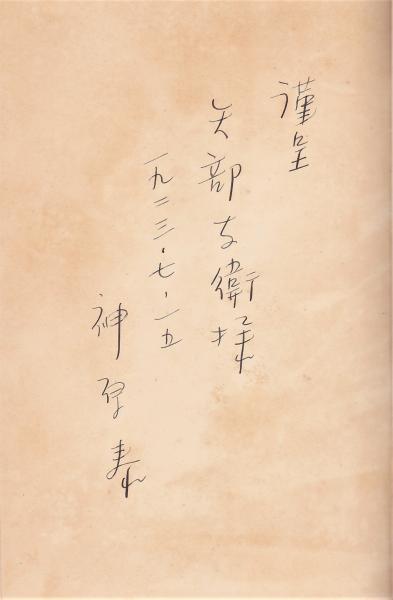 謹呈
矢部友衛様
一九二三・七・一五
神原泰